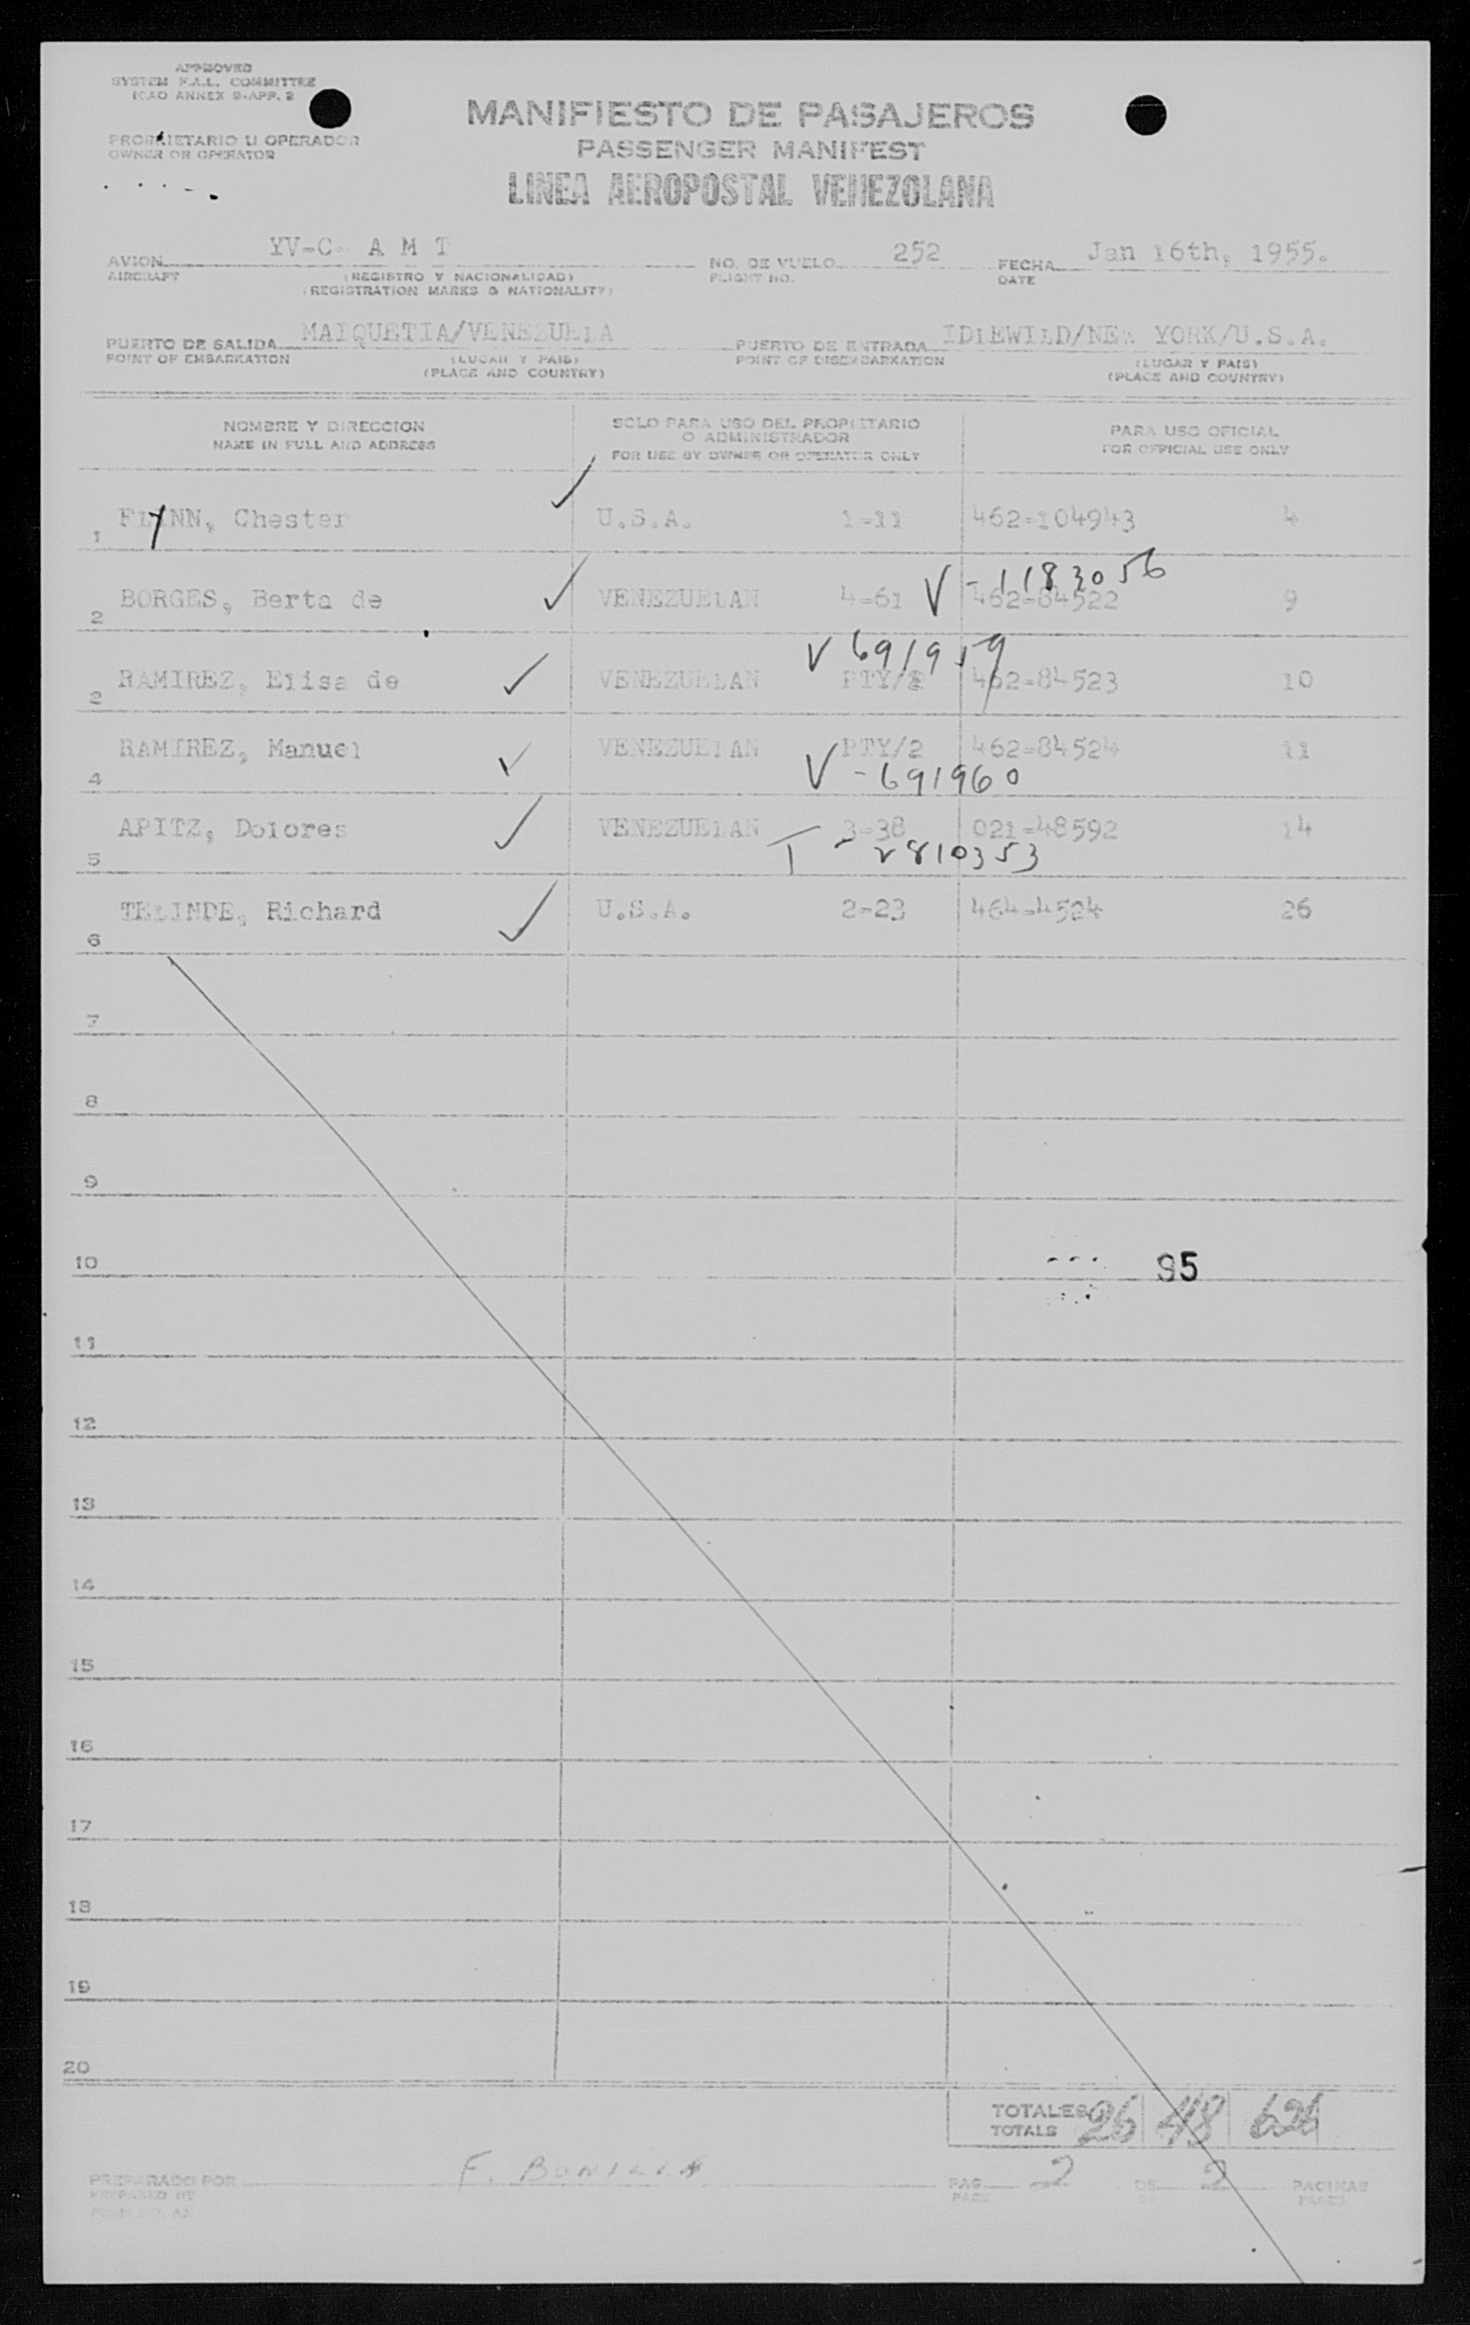 APPROVED
SYSTEM F.A.L. COMMITTEE
ICAO ANNEX 9-APP. 2
MANIFIESTO DE PASAJEROS
PROPRIETARIO U OPERADOR
OWNER OR OPERATOR
PASSENGER MANIFEST
LINEA AEROPOSTAL VENEZOLANA
AVION YV-C- A M T NO. DE VUELO 252 FECHA Jan 16th, 1955.
AIRCRAFT (REGISTRO Y NACIONALIDAD) FLIGHT NO. DATE
(REGISTRATION MARKS & NATIONALITY)
PUERTO DE SALIDA MAIQUETIA/VENEZUELA PUERTO DE ENTRADA IDLEWILD/NEW YORK/U.S.A.
POINT OF EMBARKATION (LUGAR Y PAIS) POINT OF DISEMBARKATION (LUGAR Y PAIS)
(PLACE AND COUNTRY) (PLACE AND COUNTRY)
NOMBRE Y DIRECCION SOLO PARA USO DEL PROPIETARIO PARA USO OFICIAL
NAME IN FULL AND ADDRESS O ADMINISTRADOR FOR OFFICIAL USE ONLY
FOR USE BY OWNER OR OPERATOR ONLY
1 FLYNN, Chester U.S.A. 1-11 462-104943 4
V-1183056
2 BORGES, Berta de VENEZUELAN 4-61 462-84522 9
V 691959
2 RAMIREZ, Elisa de VENEZUELAN PTY/2 462-84523 10
4 RAMIREZ, Manuel VENEZUELAN PTY/2 462-84524 11
V-691960
5 APITZ, Dolores VENEZUELAN 3-38 021-48592 14
T-2810353
6 TELINDE, Richard U.S.A. 2-23 464-4524 26
7
8
9
10 95
11
12
13
14
15
16
17
18
19
20
TOTALES 26 48 626
TOTALS
PREPARADO POR F. BONILLA PAG. 2 DE 2 PAGINAS
PREPARED BY PAGE PAGES